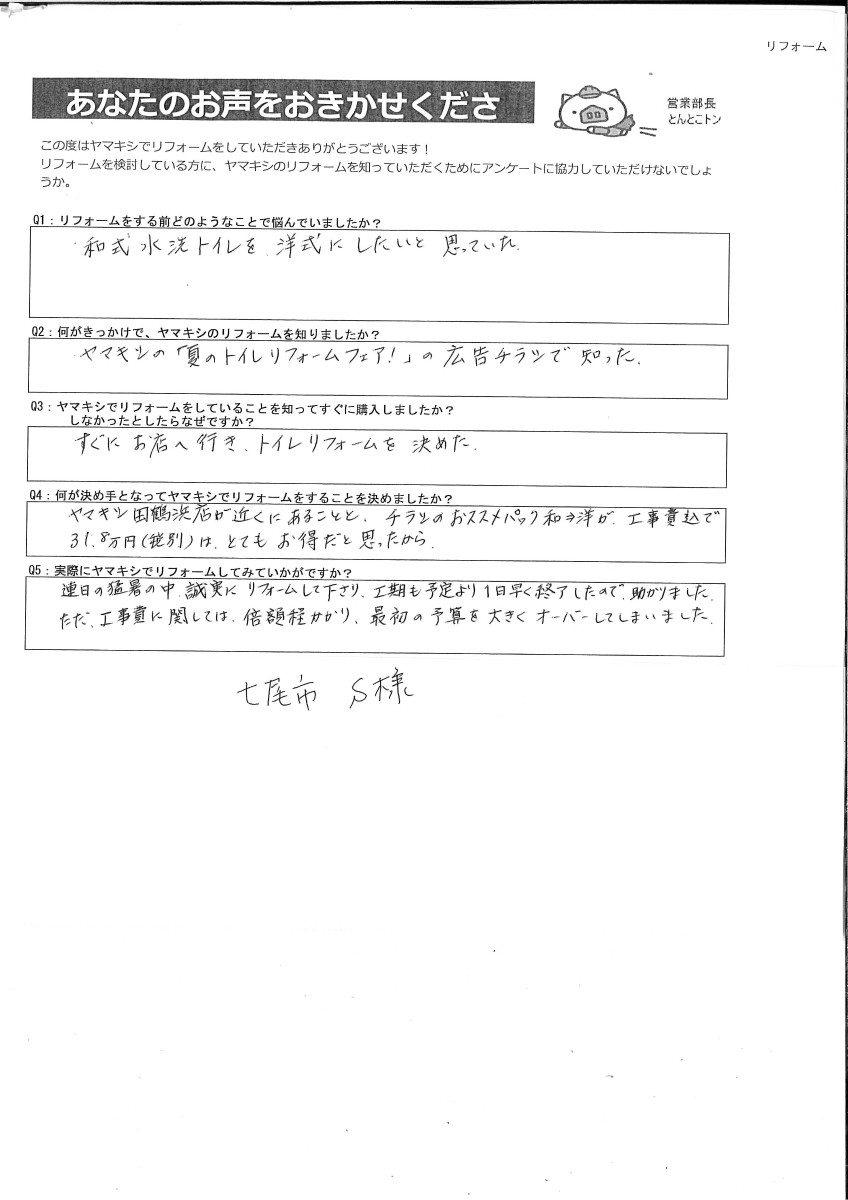 リフォーム
あなたのお声をおきかせくださ
営業部長
とんとこトン
この度はヤマキシでリフォームをしていただきありがとうございます！
リフォームを検討している方に、ヤマキシのリフォームを知っていただくためにアンケートに協力していただけないでしょ
うか。
Q1：リフォームをする前どのようなことで悩んでいましたか？
和式水洗トイレを、洋式にしたいと思っていた。
Q2：何がきっかけで、ヤマキシのリフォームを知りましたか？
ヤマキシの「夏のトイレリフォームフェア！」の広告チラシで知った。
Q3：ヤマキシでリフォームをしていることを知ってすぐに購入しましたか？
しなかったとしたらなぜですか？
すぐにお店へ行き、トイレリフォームを決めた。
Q4：何が決め手となってヤマキシでリフォームをすることを決めましたか？
ヤマキシ田鶴浜店が近くにあることと、チラシのおススメパック和⇒洋が、工事費込で
31.8万円(税別)は、とてもお得だと思ったから。
Q5：実際にヤマキシでリフォームしてみていかがですか？
連日の猛暑の中、誠実にリフォームして下さり、工期も予定より1日早く終了したので、助かりました。
ただ、工事費に関しては、倍額程かかり、最初の予算を大きくオーバーしてしまいました。
七尾市 S様